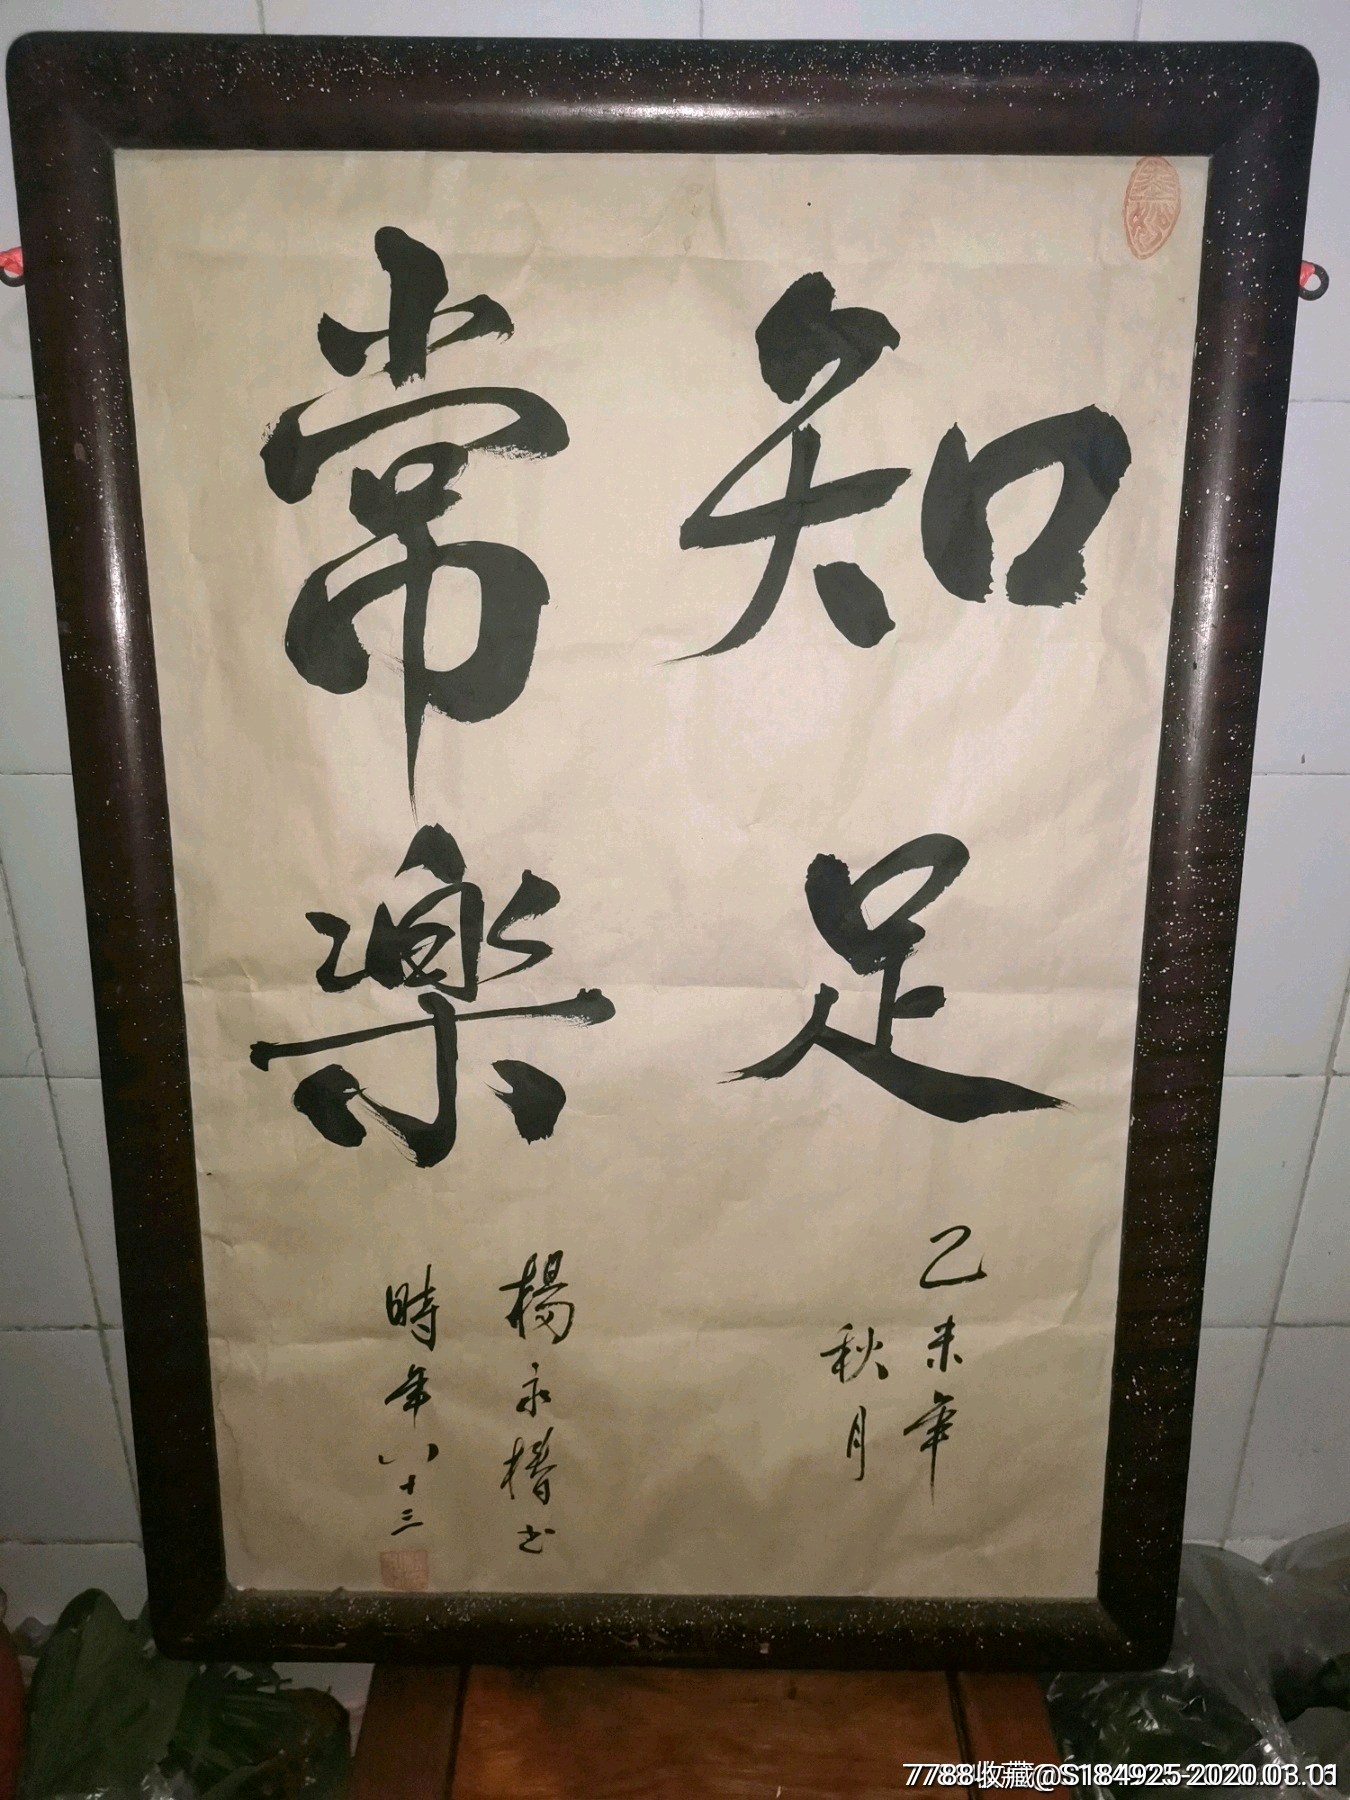 知足
常樂
乙未年
秋月
楊永椿书
時年八十三
7788收藏@S184925-2020.03.01